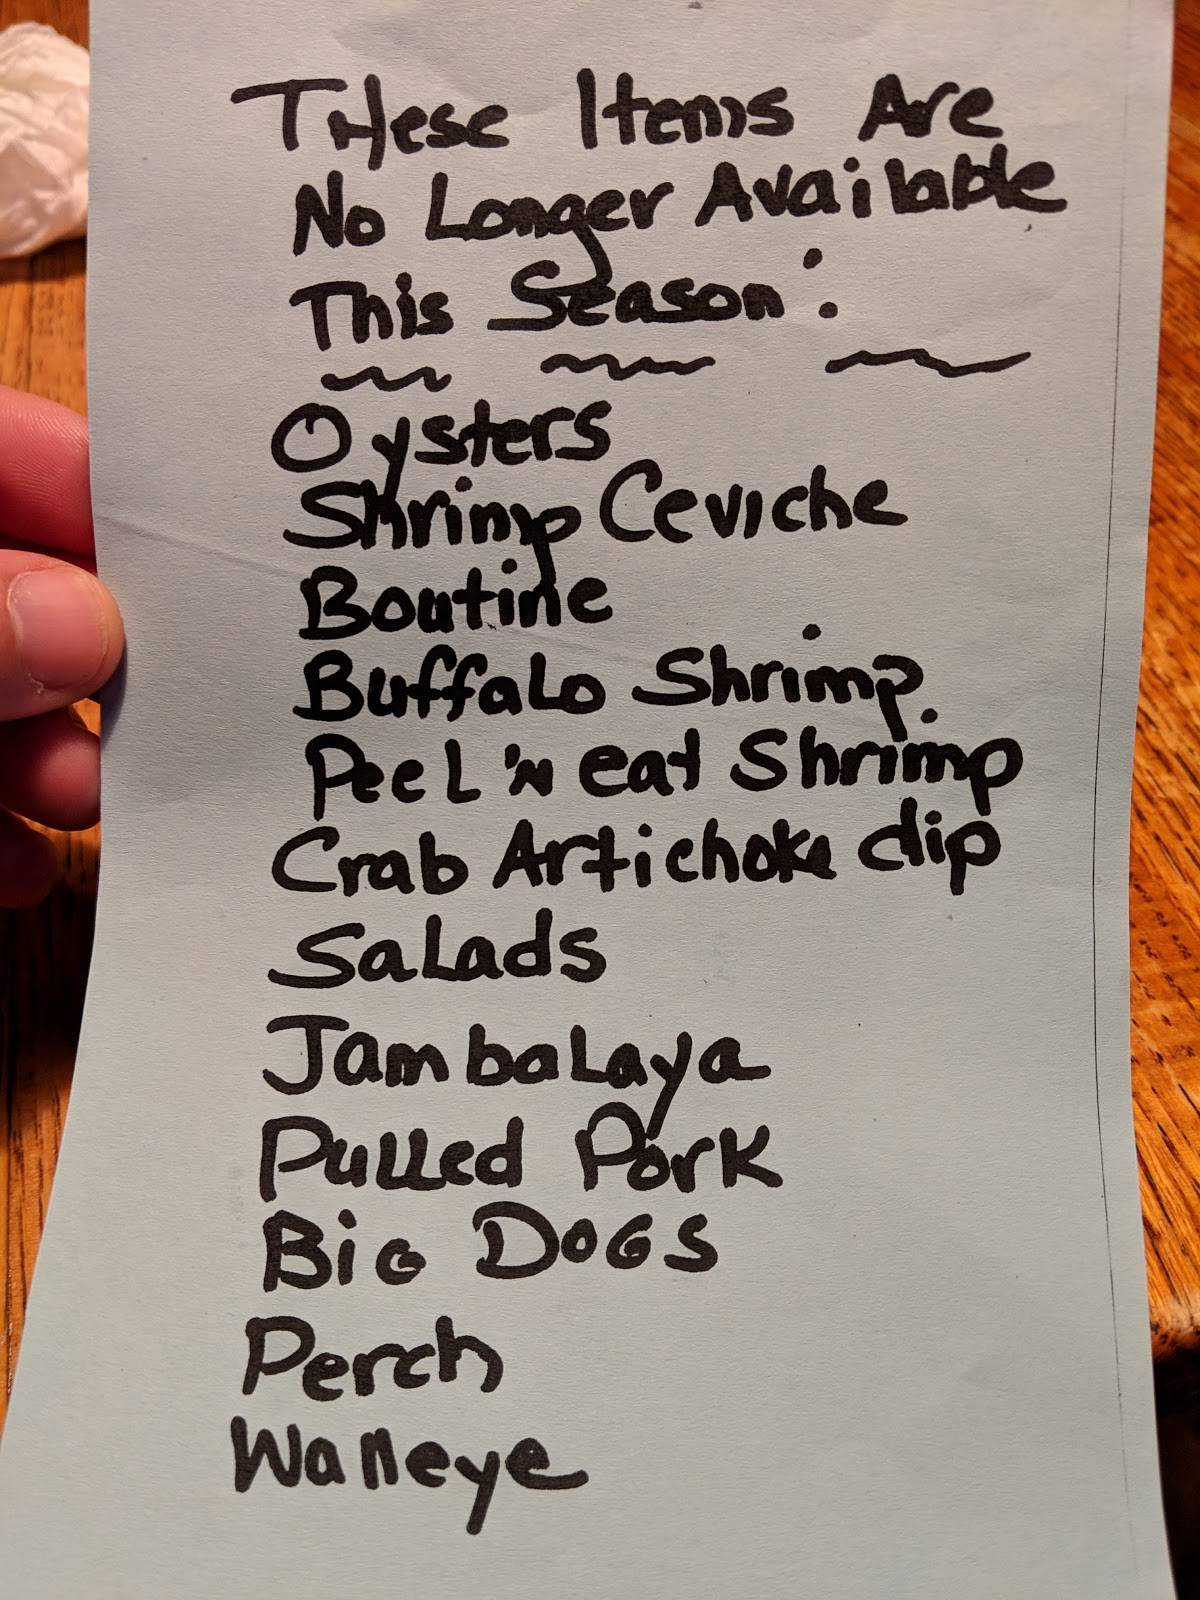 THese Items Are
No Longer Available
This Season:
Oysters
Shrimp Ceviche
Boutine
Buffalo Shrimp
Peel 'n eat Shrimp
Crab Artichoke dip
Salads
Jambalaya
Pulled Pork
BiG DOGS
Perch
Walleye